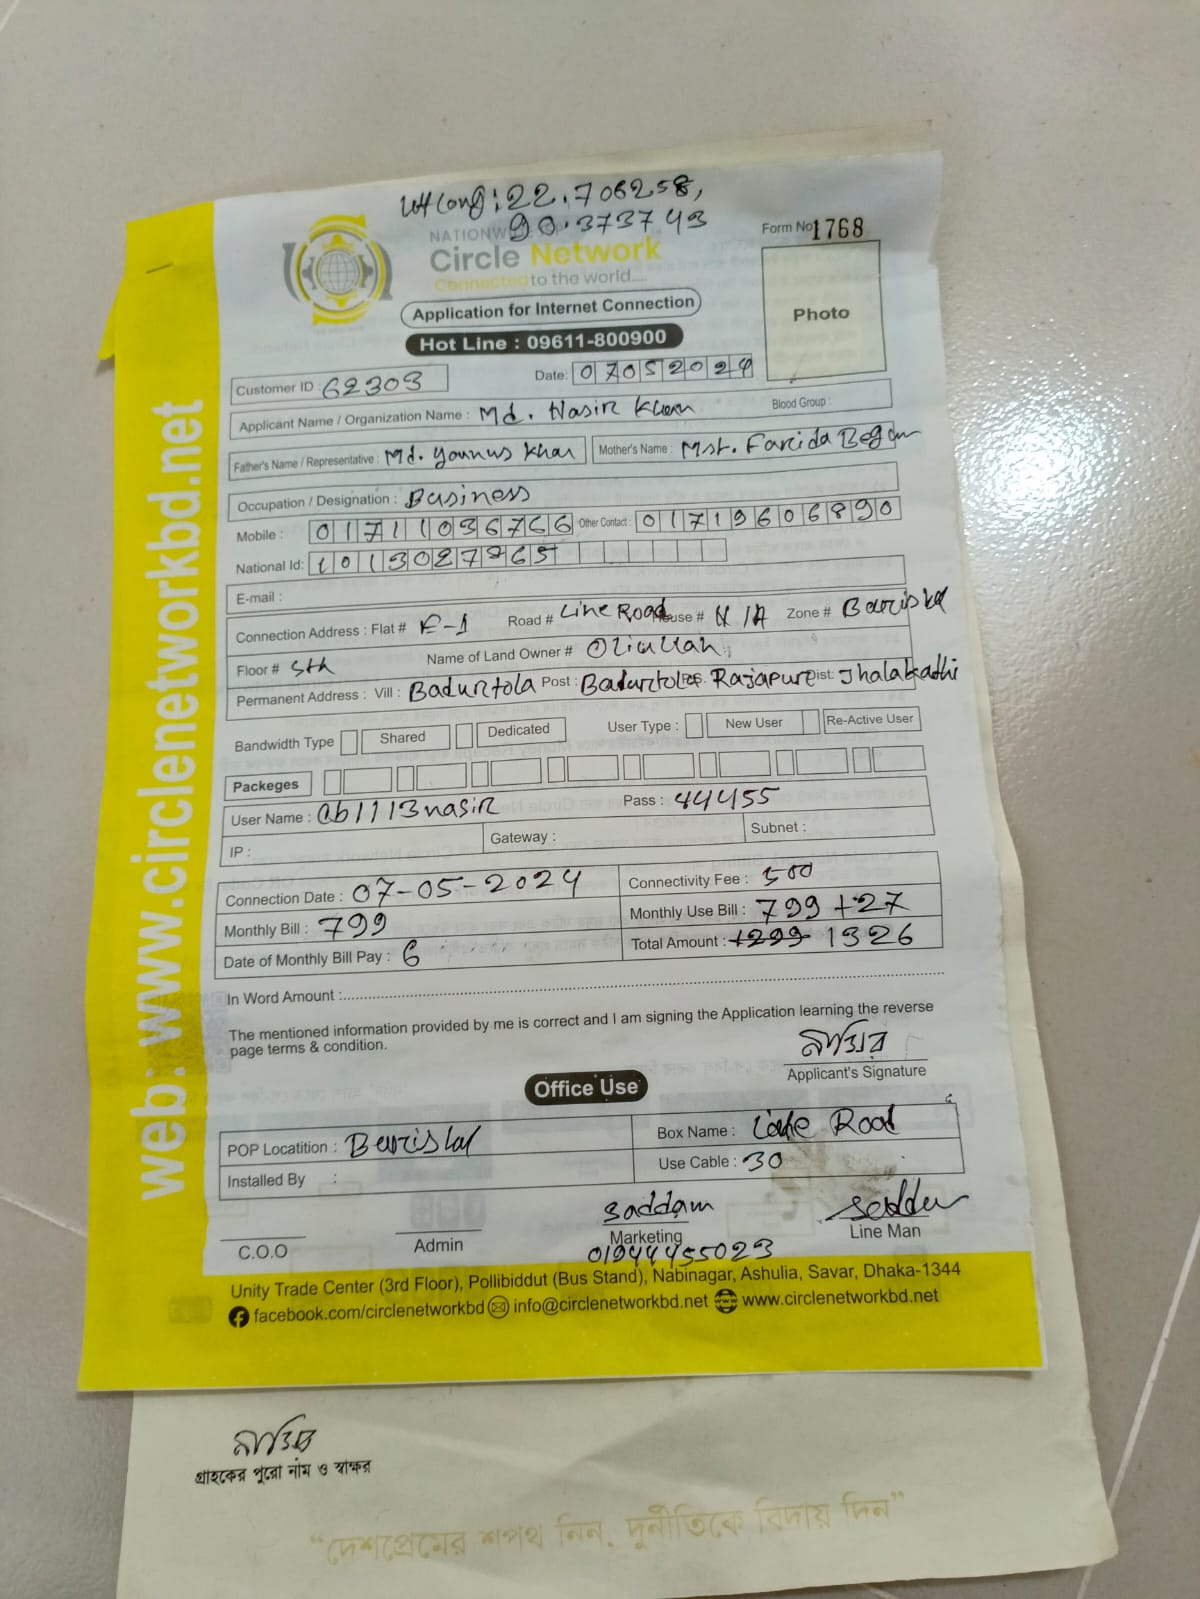 22.706258,
90.373743
NATIONW
Circle Network
Connected to the world....
Form No 1768
Photo
Application for Internet Connection
Hot Line : 09611-800900
Customer ID : 62303
Date: 07052024
Applicant Name / Organization Name : Md. Nasir Khan
Blood Group :
Father's Name / Representative : Md. Younus Khan Mother's Name : Mst. Farida Begum
Occupation / Designation : Business
Mobile : 01711036766 Other Contact : 01719606890
National Id: 1013027265
E-mail :
Connection Address : Flat # E-1 Road # Line Road House # N/A Zone # Barishal
Floor # 5th Name of Land Owner # Oliullah
Permanent Address : Vill : Badurtola Post : Badurtola P.S. Rajapur Dist: Jhalakathi
Bandwidth Type Shared Dedicated User Type : New User Re-Active User
Packeges
User Name : cb1113nasir Pass : 44455
IP : Gateway : Subnet :
Connection Date : 07-05-2024 Connectivity Fee : 500
Monthly Bill : 799 Monthly Use Bill : 799 +27
Date of Monthly Bill Pay : 6 Total Amount : 1299 1326
In Word Amount :
The mentioned information provided by me is correct and I am signing the Application learning the reverse
page terms & condition.
নাসির
Applicant's Signature
Office Use
POP Locatition : Barishal Box Name : Line Road
Installed By : Use Cable : 30
Saddam
C.O.O Admin Marketing Line Man
01944455023
Unity Trade Center (3rd Floor), Pollibiddut (Bus Stand), Nabinagar, Ashulia, Savar, Dhaka-1344
facebook.com/circlenetworkbd info@circlenetworkbd.net www.circlenetworkbd.net
web: www.circlenetworkbd.net
নাসির
গ্রাহকের পুরো নাম ও স্বাক্ষর
“দেশপ্রেমের শপথ নিন, দুর্নীতিকে বিদায় দিন”